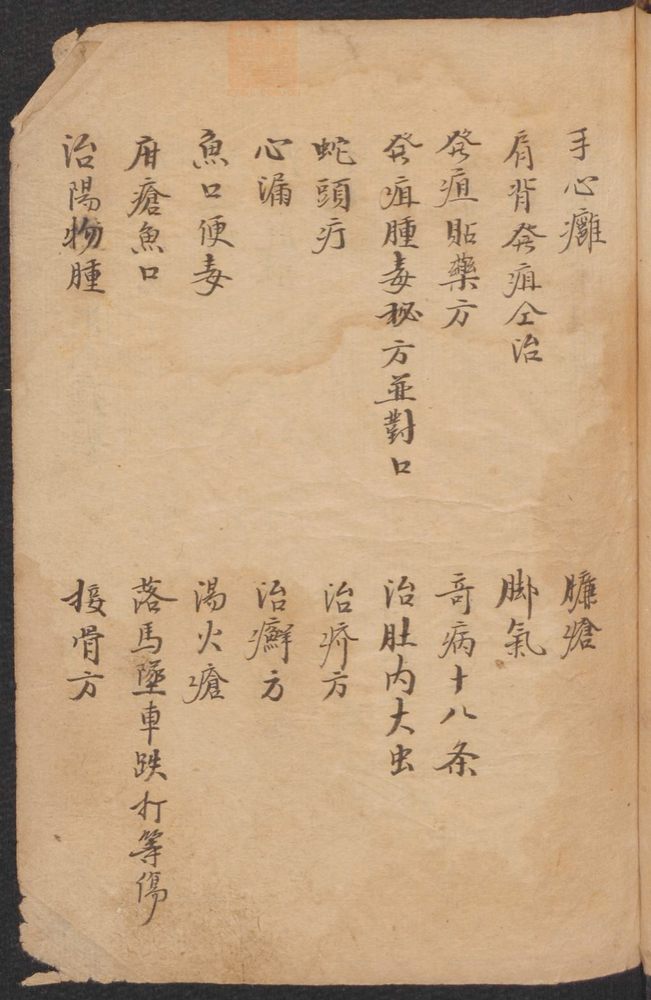 手心癰
肩背癹疽仝治
癹疽貼藥方
癹疽腫毒秘方並對口
蛇頭疔
心漏
魚口便毒
疳瘡魚口
治陽物腫
臁瘡
脚氣
奇病十八条
治肚内大虫
治疥方
治癬方
湯火瘡
落馬墜車跌打等傷
接骨方